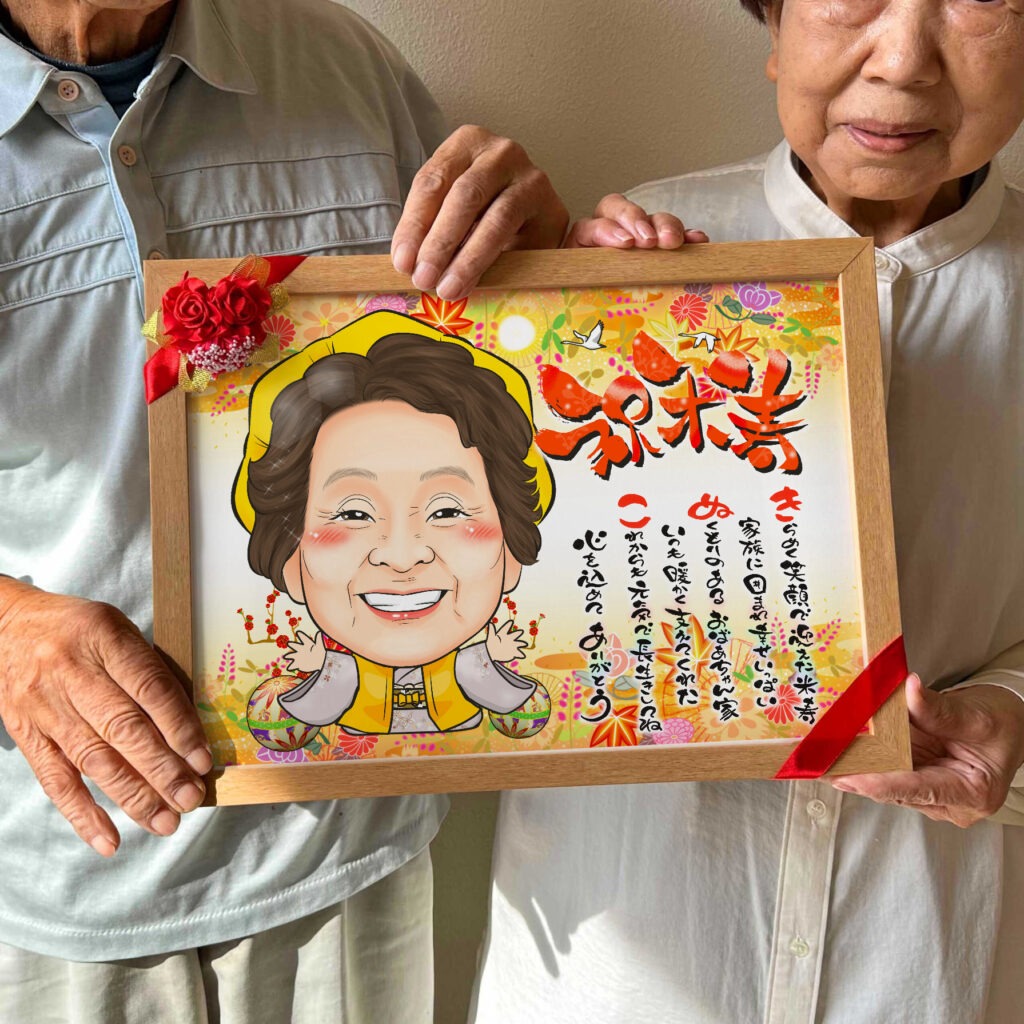 祝米寿
きらめく笑顔で迎えた米寿
家族に囲まれ幸せいっぱい
ぬくもりのある おばあちゃん家
いつも暖かく支えてくれた
これからも元気で長生きしてね
心を込めて ありがとう